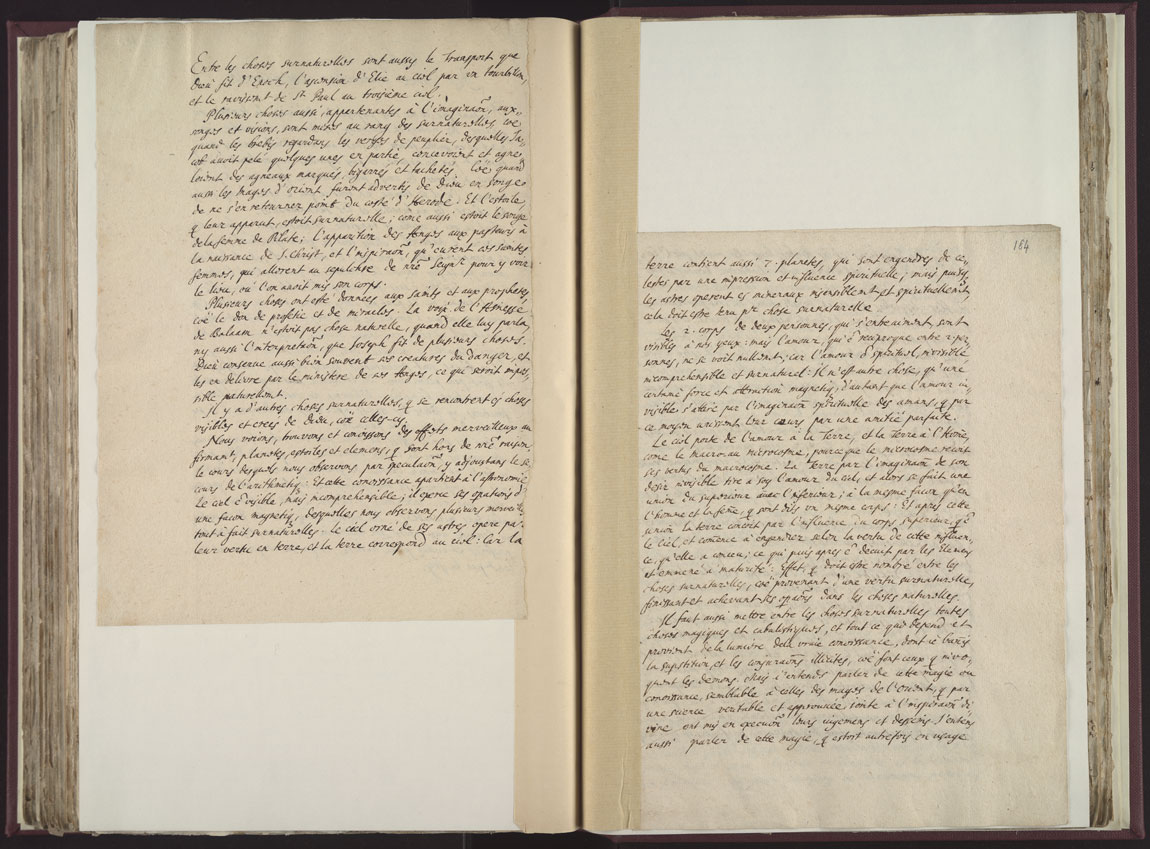 Entre les choses surnaturelles sont aussy le Transport que
Dieu fit d'Enoch, l'ascension d'Elie au ciel par un tourbillon,
et le ravissemt de St Paul au troisième ciel.
Plusieurs choses aussi, appartenantes à l'imaginaõn, aux
songes et visions, sont mises au rang des surnaturelles, cõe
quand les brebis regardans les verges de peuplier, desquelles Ja,
cob avoit pelé quelques unes en partie, concevoient et agne,
loient des agneaux marqués, bigarrés et tachetés. Cõe quand
aussi les Mages d'orient furent advertis de Dieu en songe
de ne s'en retourner point du costé d'Herode. Et l'estoile,
q leur apparut, estoit surnaturelle; cõme aussi estoit le songe
de la femme de Pilate; l'apparition des Anges aux pasteurs à
la naissance de J. Christ, et l'inspiraõn, qu'eurent ces saintes
femmes, qui allerent au sepulchre de nrẽ Seignr pour y voir
le lieu, où l'on avoit mis son corps.
Plusieurs choses ont esté données aux saints et aux prophetes,
cõe le don de profetie et de miracles. La voix de l'Asnesse
de Balaam n'estoit pas chose naturelle, quand elle luy parla,
ny aussi l'interpretaõn, que Joseph fit de plusieurs choses.
Dieu conserve aussi bien souvent ses creatures du danger, et
les en delivre par le ministere de ses Anges, ce qui seroit impos,
sible naturellemt.
Il y a d'autres choses surnaturelles, q se rencontrent es choses
visibles et crees de Dieu, cõe celles-cy.
Nous voions, trouvons et connoissons des effects merveilleux au
firmamt, planetes, estoiles et elemens, q sont hors de nrẽ raison,
le cours desquels nous observons par speculaõn, y adjoustans le se,
cours de l'arithmetiq: Et cette connoissance apartient à l'astronomie.
Le ciel ẽ visible, mais incomprehensible; il opere ses opations d'
une façon magnetiq, desquelles nous observons plusieurs merveilles
tout à fait surnaturelles. Le ciel orné de ses astres opere par
leur vertu en terre, et la terre correspond au ciel: Car la
164
terre contient aussi 7. planetes, qui sont engendrés de ce,
lestes par une impression et influence spirituelle; mais puisq,
les astres operent es mineraux insensiblement et spirituellemt,
cela doit estre tenu pr chose surnaturelle.
Les 2. corps de deux personnes, qui s'entreaiment, sont
visibles à nos yeux: mais l'amour, qui ẽ reciproque entre 2. per,
sonnes, ne se voit nullemt; car l'amour ẽ spirituel, invisible,
incomprehensible et surnaturel: Il n'est autre chose, qu'une
certaine force et attraction magnetiq, d'autant que l'amour in,
visible s'attire par l'imaginaõn spirituelle des amans, q par
ce moyen unissent leur cœurs par une amitié parfaite.
Le ciel porte de l'amour à la Terre, et la Terre à l'hõme,
cõme le macro- au microcosme, pource que le microcosme reçoit
ses vertus du macrocosme. La terre par l'imaginaõn de son
desir invisible tire à soy l'amour du ciel, et alors se fait une
union du superieur avec l'inferieur; à la mesme façon qu'en
l'homme et la fẽme, q sont dits un mesme corps: Et apres cette
union la terre conçoit par l'influence du corps superieur, q ẽ
le ciel, et cõmence à engendrer selon la vertu de cette influen,
ce, qu'elle a conceu; ce qui puis apres ẽ decuit par les Elemens
et emmené à maturité: Effet, q doit estre nombré entre les
choses surnaturelles, cõe provenant d'une vertu surnaturelle,
finissant et achevant ses opaõns dans les choses naturelles.
Il faut aussi mettre entre les choses surnaturelles toutes
choses magiques et cabalistiques, et tout ce que depend et
provient de la lumiere de la vraie connoissance, dont ie bannis
la supstition, et les conjuraõns illicites, cõe font ceux q invo,
quent les demons. Mais i'entends parler de cette magie ou
connoissance, semblable à celles des mages de l'Orient, q par
une science veritable et approuvée, iointe à l'inspiraõn di,
vine ont mis en execuõn leurs iugemens et desseins. J'entens
aussi parler de cette magie, q estoit autrefois en usage